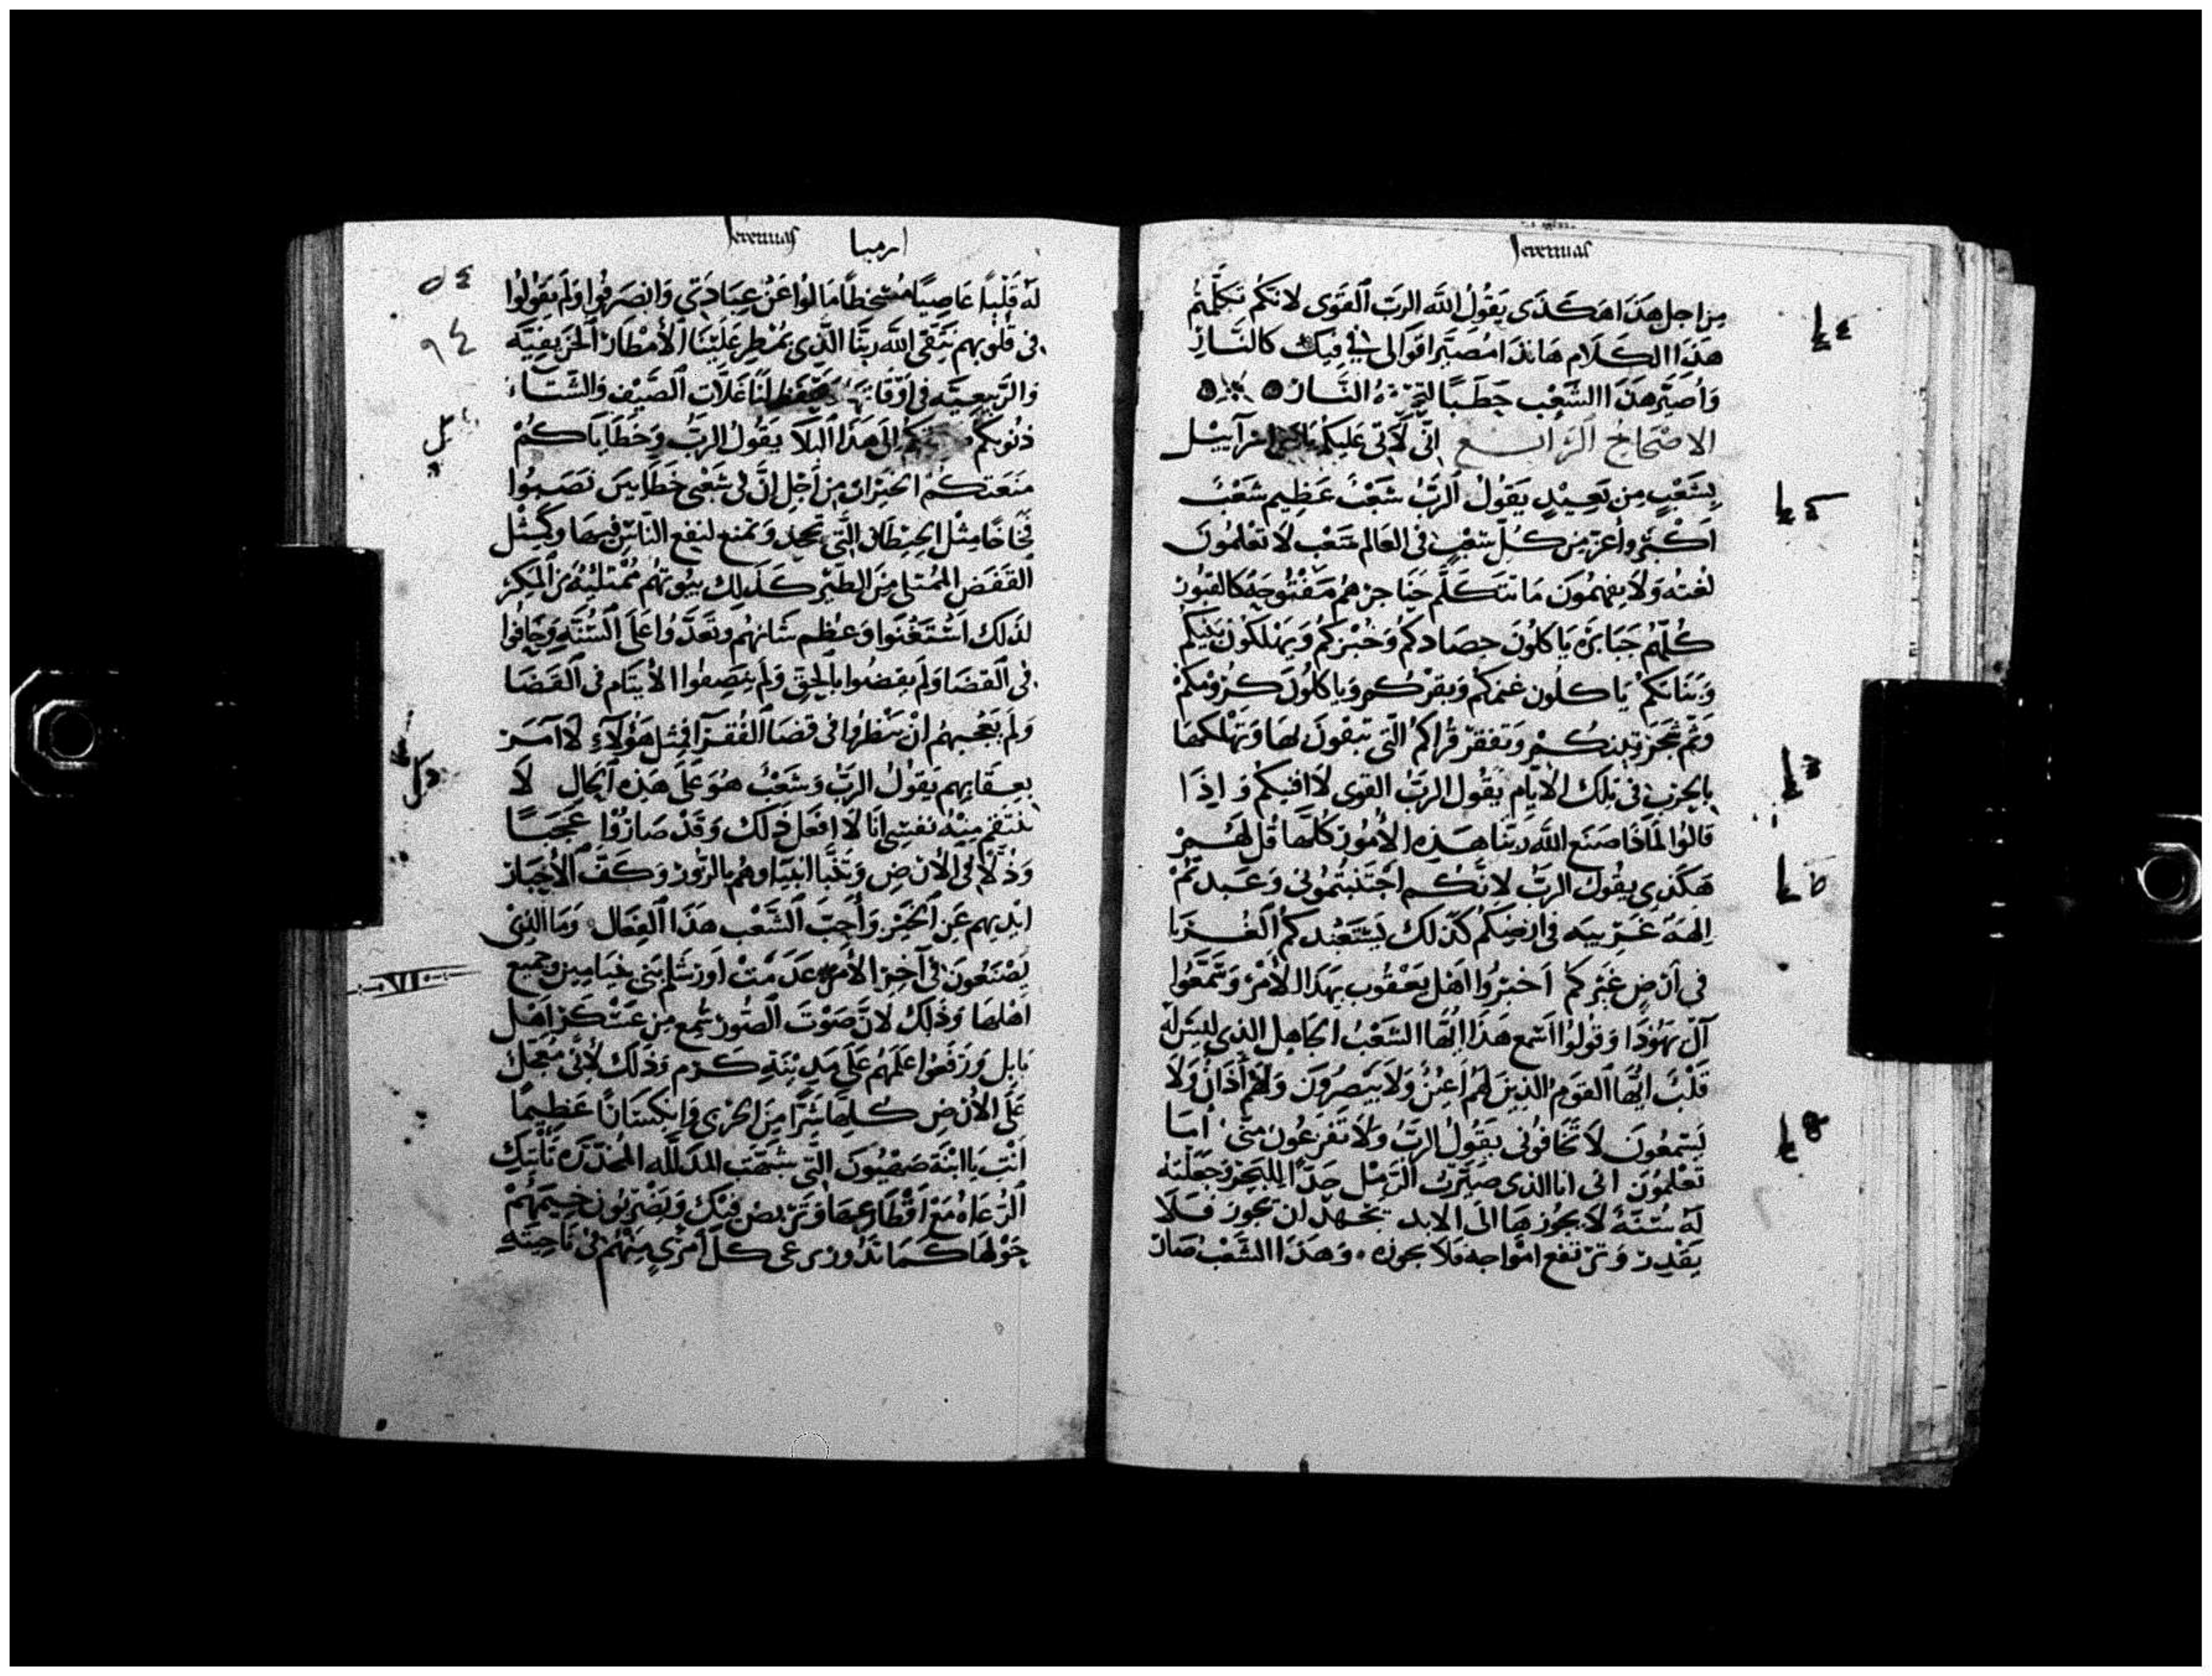 Jeremias
من اجل هذا هكذى يقول الله الرب القوى لانكم تكلمتم
هذا الكلام هانذا مصير اقوالى فى فيك كالنار
واصير هذا الشعب حطبا النار
الاصحاح الرابع انى لاتى عليكم اسرآييل
بشعب من بعيد يقول الرب شعب عظيم شعب
اكبر واعز من كل شعب فى العالم شعب لا تعلمون
لغته ولا يفهمون ما تتكلم حناجرهم مفتوحة كالقبور
كلهم جبابره ياكلون حصادكم وخبزكم ويهلكون بنيكم
وبناتكم ياكلون غنمكم وبقركم وياكلون كرومكم
وتفقر قراكم التى تبقون لها وتهلكها
بالحرب فى تلك الايام يقول الرب القوى لا افنيكم واذا
قالوا لماذا صنع الله ربنا هذه الامور كلها قل لهم
هكذى يقول الرب لانكم اجتنبتمونى وعبدتم
الهة غريبه فى ارضكم كذلك يستعبدكم الغربا
فى ارض غيركم اخبروا اهل يعقوب بهذا الامر وتمتعوا
آل يهوذا وقولوا اسمع هذا ايها الشعب الجاهل الذى ليس له
قلب ايها القوم الذين لهم اعين ولا يبصرون ولهم أذان ولا
يسمعون لا تخافونى يقول الرب ولا تفزعون منى اما
تعلمون انى انا الذى صيرت الرمل حدا للبحر وجعلته
له سنة لا يجوزها الى الابد يجهد لن يجوز فلا
يقدر وترتفع امواجه فلا يجوزه وهذا الشعب صار
Jeremias ارميا
له قلبا عاصيا مسخطا مالوا عن عبادتى وانصرفوا ولم يقولوا
فى قلوبهم نتقى الله ربنا الذى يمطر علينا الامطار الخريفيه
والربيعيه فى اوقاتها لنا غلات الصيف والشتاء
ذنوبكم هذا البلا يقول الرب وخطاياكم
منعتكم الخيرات من اجل ان فى شعبى خطايين نصبوا
فخاخا مثل الحيطان التى وتمنع لنفع الناس فيها وكمثل
القفص الممتلى من الطير كذلك بيوتهم ممتلئة من المكر
لذلك استغنوا وعظم شانهم وتعدوا على السنة وحافوا
فى القضا ولم يقضوا بالحق ولم ينصفوا الايتام فى القضا
ولم يعجبهم ان ينظروا فى قضا الفقرآ افمثل هؤلآء لا آمر
بعقابهم يقول الرب وشعب هو على هذه الحال لا
تنتقم منه نفسى انا لا افعل ذلك وقد صاروا عجبا
وذلا فى الارض وتنبا انبياوهم بالزور وكف الاحبار
ايديهم عن الخير واحب الشعب هذا الفعال وما الذى
يصنعون فى آخر الامر عدمت اورشلم بنى بنيامين وجميع
اهلها وذلك لان صوت الصور سمع من عسكر اهل
بابل ورفعوا علمهم على مدينة كرم وذلك لانى معجل
على الارض كلها شرا من الجرى وانكسارا عظيما
انت يا ابنة صهيون التى شبهت المدلله المخدره تاتيك
الرعاه مع اقطارعها وتربض فيك ويضربون خيمهم
حولها كما تدور يرعى كل امرى منهم فى ناحيته